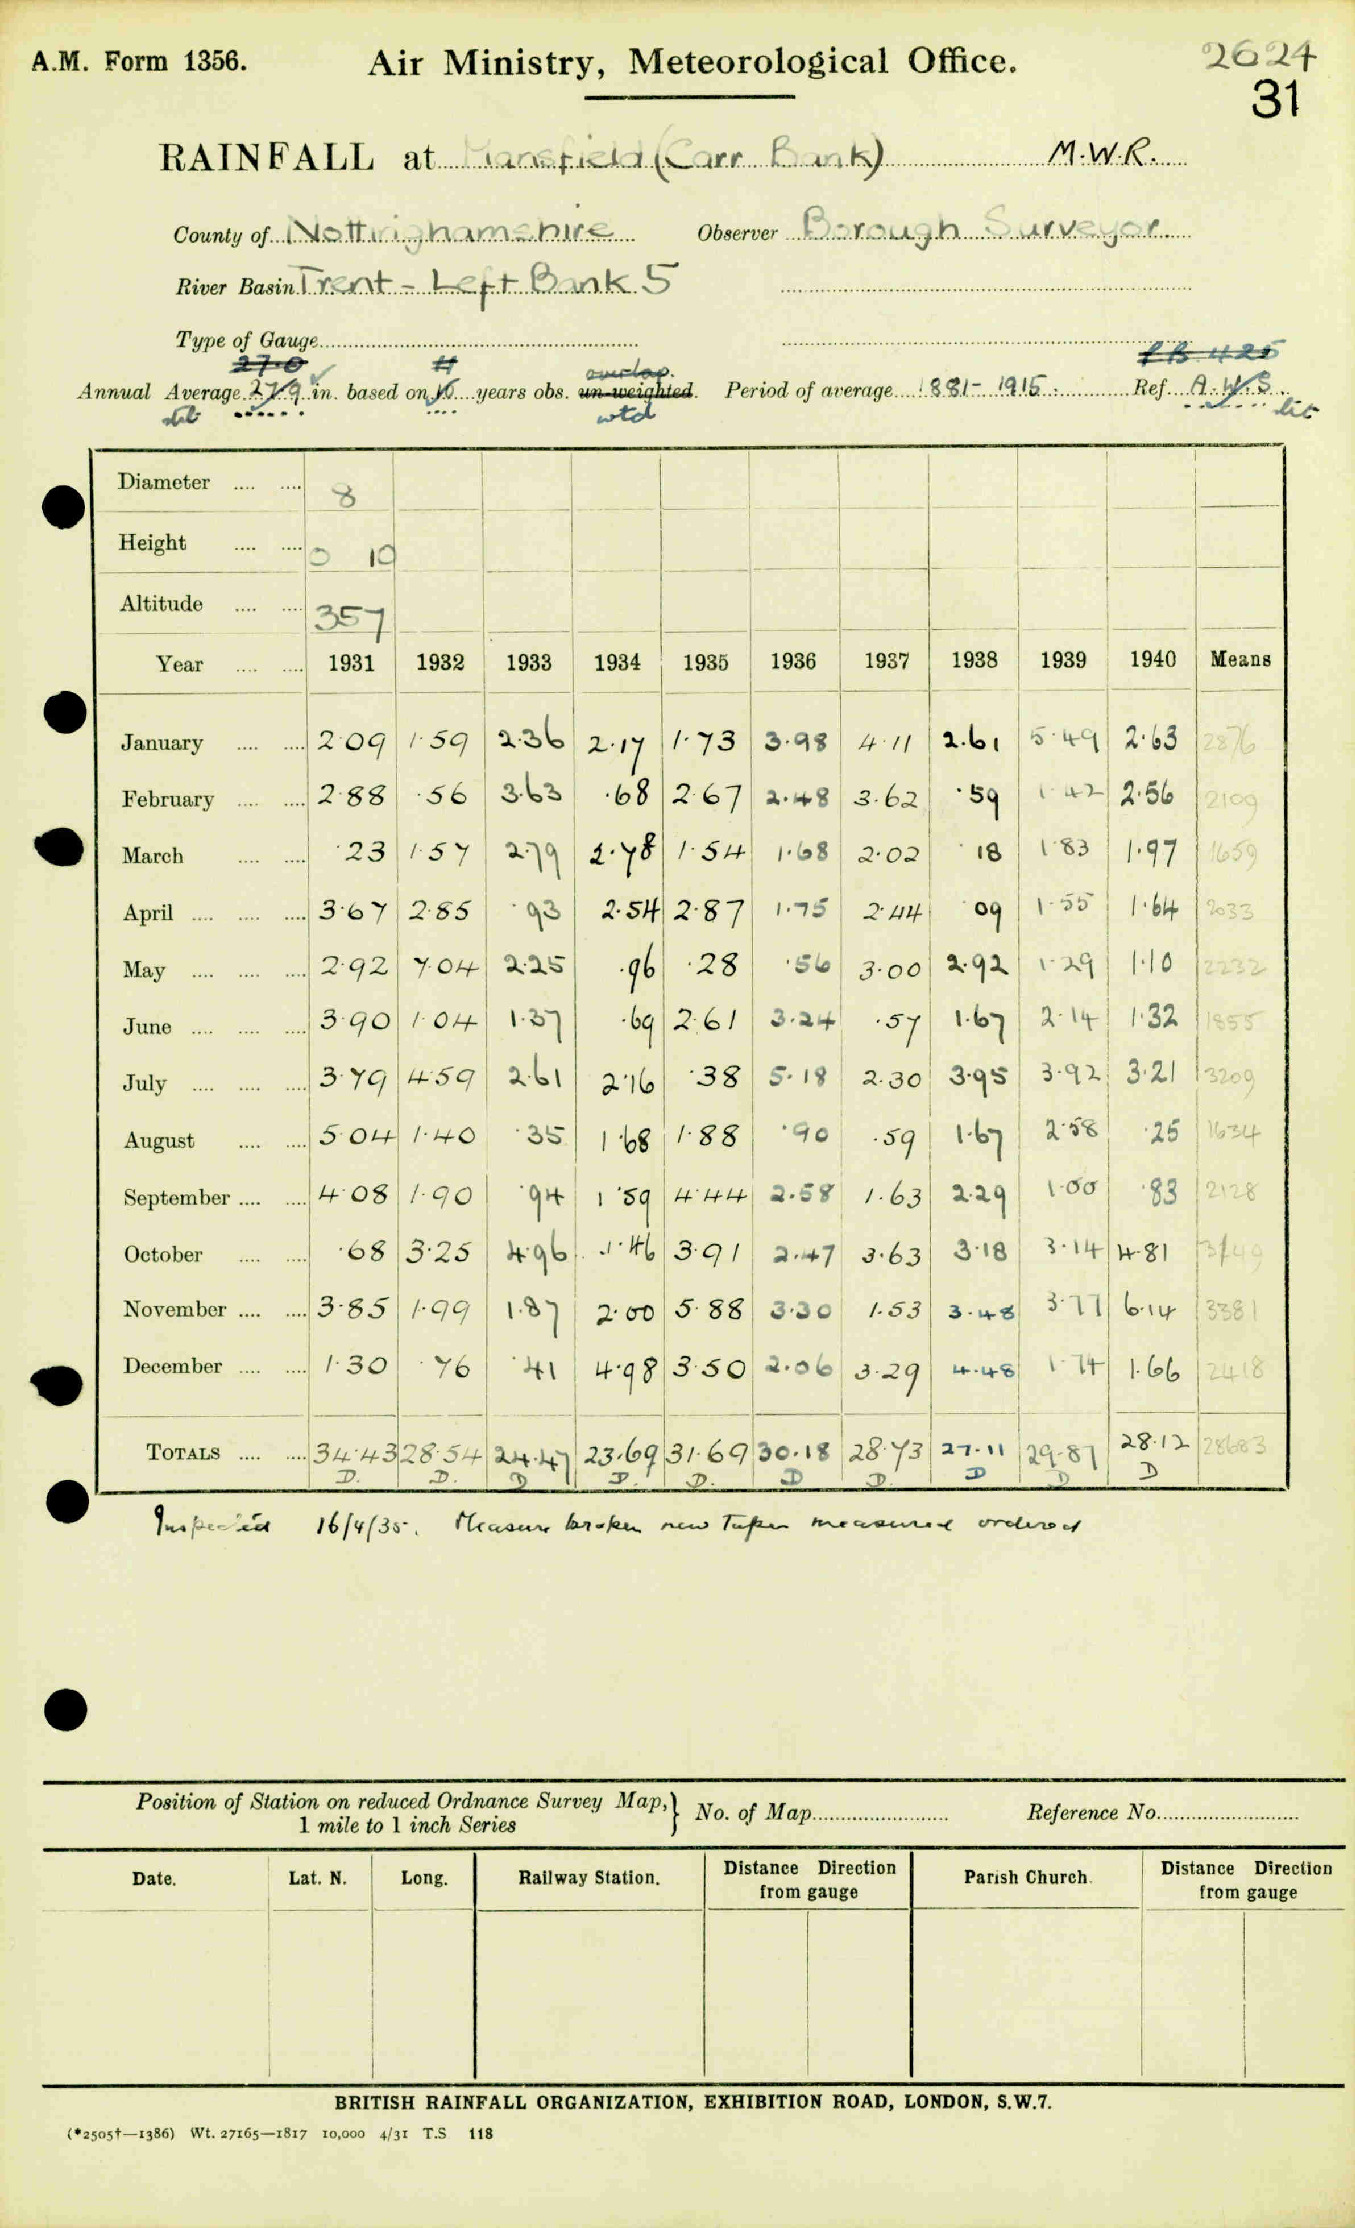 A.M. Form 1356.
Air Ministry, Meteorological Office.
2624
31
RAINFALL at Mansfield (Carr Bank) M.W.R.
County of Nottinghamshire Observer Borough Surveyor
River Basin Trent - Left Bank 5
Type of Gauge
27.0 overlap. RB 425
Annual Average 27.9 in. based on years obs. un-weighted. Period of average 1881-1915. Ref. A.W.S.
wtd
Diameter 8
Height 0 10
Altitude 357
Year 1931 1932 1933 1934 1935 1936 1937 1938 1939 1940 Means
January 2.09 1.59 2.36 2.17 1.73 3.98 4.11 2.61 5.49 2.63 2876
February 2.88 .56 3.63 .68 2.67 2.48 3.62 .59 1.42 2.56 2109
March .23 1.57 2.79 2.78 1.54 1.68 2.02 .18 1.83 1.97 1659
April 3.67 2.85 .93 2.54 2.87 1.75 2.44 .09 1.55 1.64 2033
May 2.92 7.04 2.25 .96 .28 .56 3.00 2.92 1.29 1.10 2232
June 3.90 1.04 1.37 .69 2.61 3.24 .57 1.67 2.14 1.32 1855
July 3.79 4.59 2.61 2.16 .38 5.18 2.30 3.95 3.92 3.21 3209
August 5.04 1.40 .35 1.68 1.88 .90 .59 1.67 2.58 .25 1634
September 4.08 1.90 .94 1.59 4.44 2.58 1.63 2.29 1.00 .83 2128
October .68 3.25 4.96 1.46 3.91 2.47 3.63 3.18 3.14 4.81 3149
November 3.85 1.99 1.87 2.00 5.88 3.30 1.53 3.48 3.77 6.14 3381
December 1.30 .76 .41 4.98 3.50 2.06 3.29 4.48 1.74 1.66 2418
TOTALS 34.43 28.54 24.47 23.69 31.69 30.18 28.73 27.11 29.87 28.12 28683
D. D. D D. D. D D. D D D
Inspected 16/4/35. Measure broken new Taper measured ordered
Position of Station on reduced Ordnance Survey Map, } No. of Map Reference No.
1 mile to 1 inch Series
Date. Lat. N. Long. Railway Station. Distance Direction from gauge Parish Church. Distance Direction from gauge
BRITISH RAINFALL ORGANIZATION, EXHIBITION ROAD, LONDON, S.W.7.
(*2505†—1386) Wt. 27165—1817 10,000 4/31 T.S 118